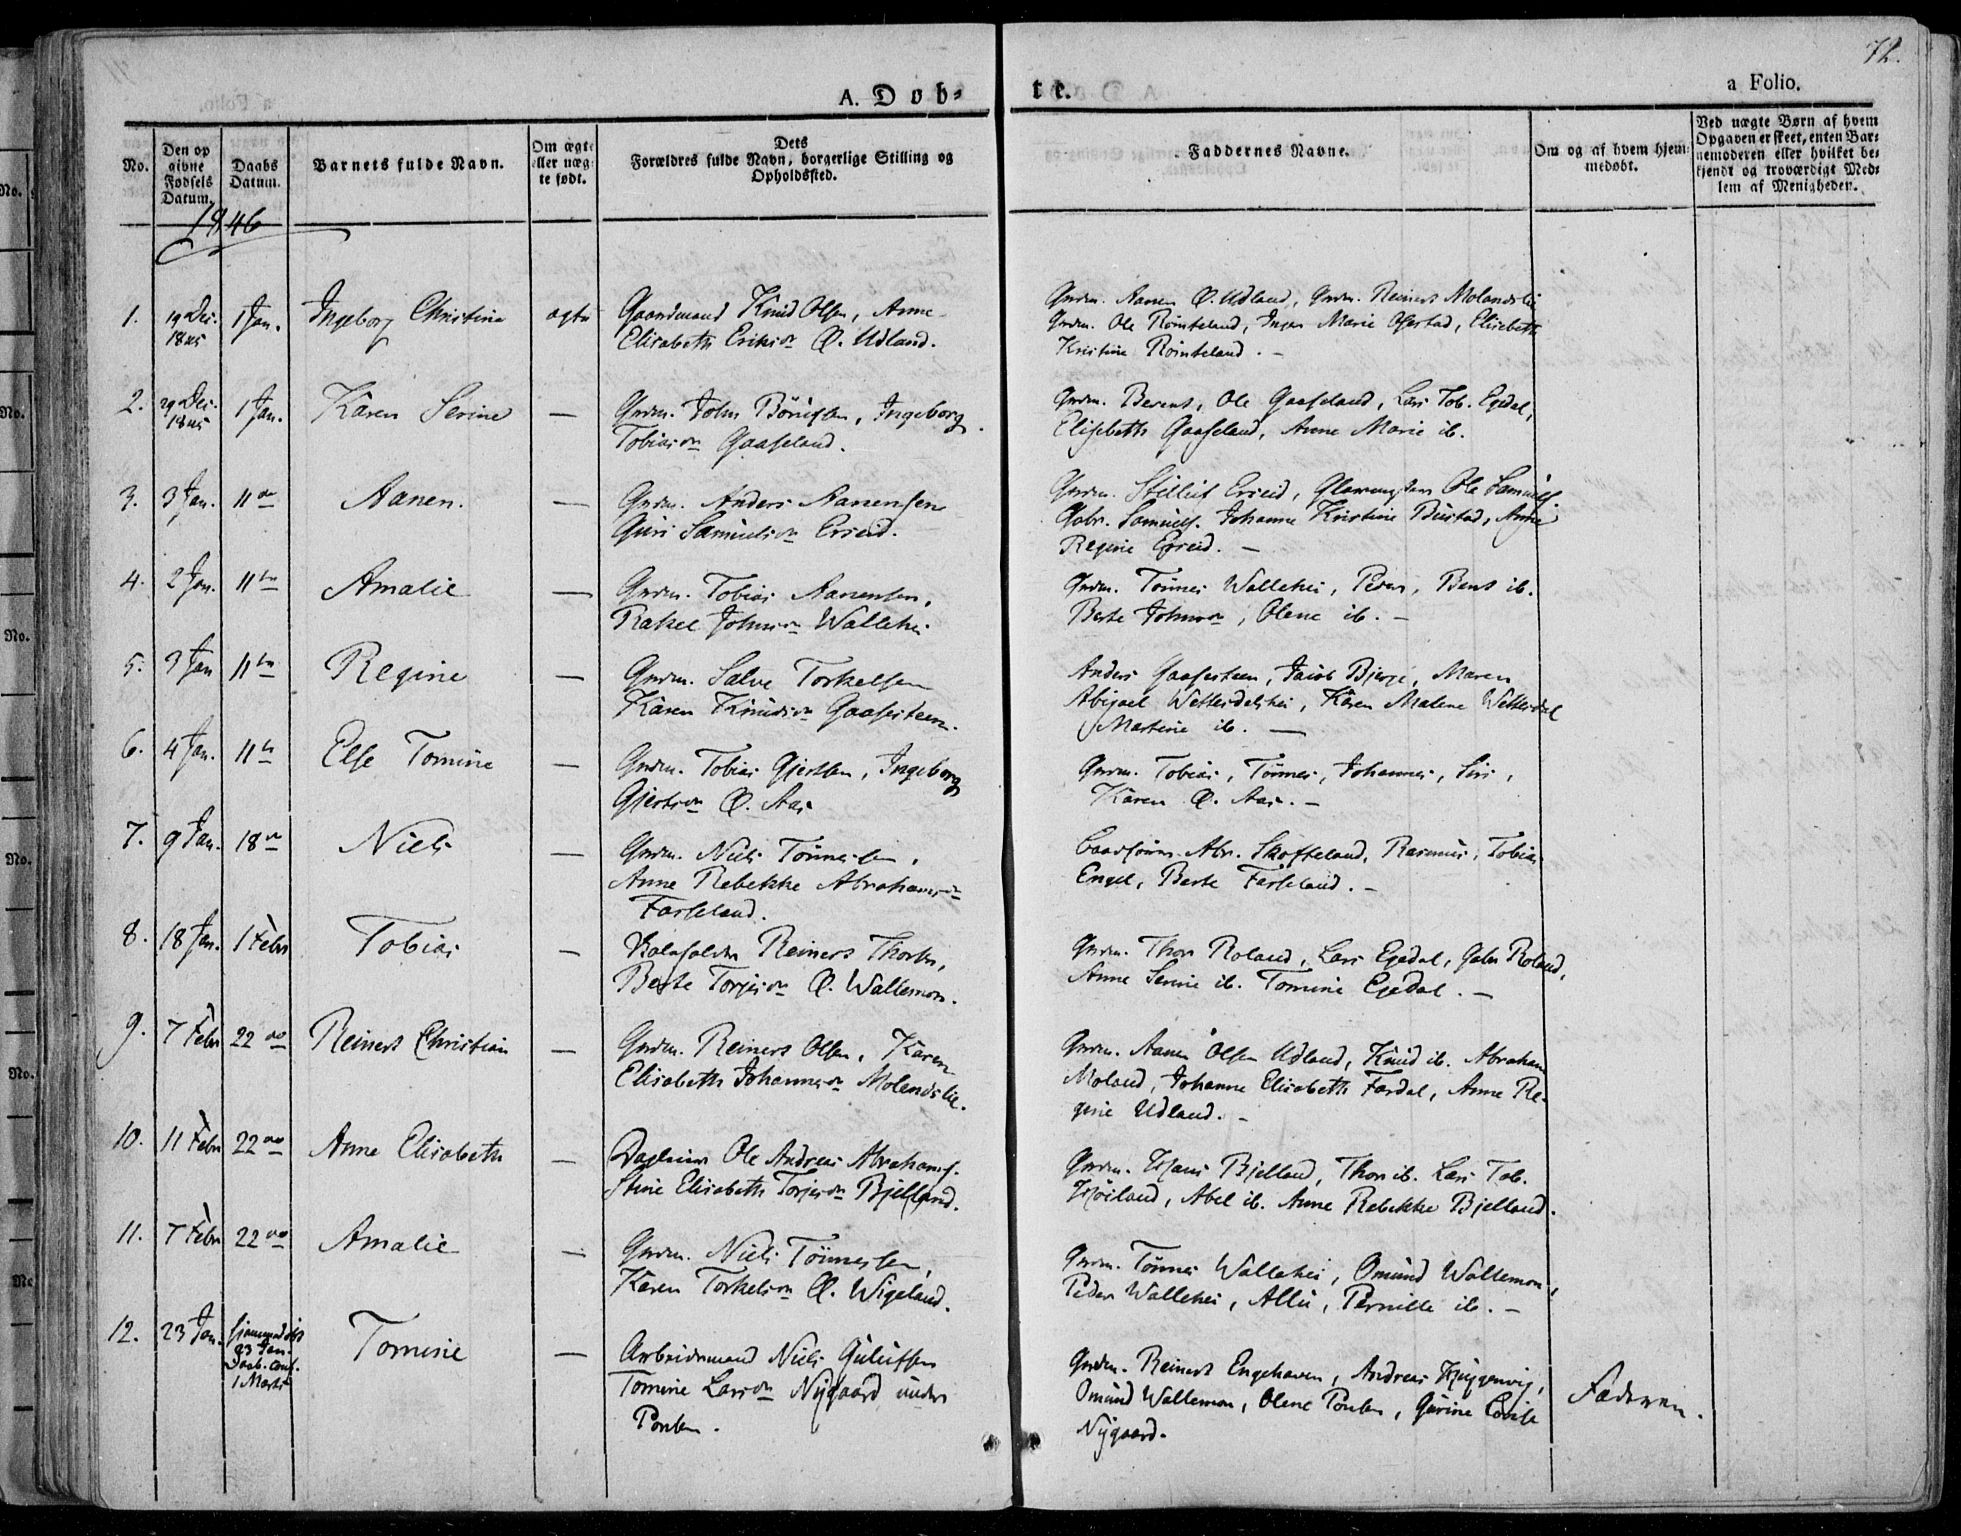 72.
A. Døb=
te.
a Folio.
No.
Den op
givne
Fødsels
Datum.
Daabs
Datum.
Barnets fulde Navn.
Om ægte
eller uæg-
te født.
Dets
Forældres fulde Navn, borgerlige Stilling og
Opholdssted.
Faddernes Navne.
Om og af hvem hjem-
medøbt.
Ved uægte Børn af hvem
Opgaven er skeet, enten Bar-
nemoderen eller hvilket be-
kjendt og troværdigt Med-
lem af Menigheden.
1846
1. 19 Dec. 1845 1 Jan. Ingeborg Christine ægte Gaardmand Knud Olsen, Anne
Elisabeth Eriksdn Ø. Udland.
Grdm. Aanen Ø. Udland, Grdm. Reinert Molandslie
Grdm. Ole Røinteland, Inger Marie Ofestad, Elisabeth
Kristine Røinteland. –
2. 29 Dec. 1845 1 Jan. Karen Serine — Grdm. John Børufsen, Ingeborg
Tobiasdn Gaaseland.
Grdm. Berent, Ole Gaaseland, Lars Tob. Egedal,
Elisebeth Gaaseland, Anne Marie ib.
3. 3 Jan. 11te Aanen. — Grdm. Anders Aanensen
Guri Samuelsdn Erseid.
Grdm. Erseid, Ole Samuels.
Gabr. Samuels. Johanne Kristine Bustad, Anne
Regine Erseid. –
4. 2 Jan. 11te Amalie — Grdm. Tobias Aanensen,
Rakel Johnsdn Wallehei
Grdm. Tønnes Wallehei, Peder, Bent ib.
Berte Johnsdn, Olene ib. –
5. 3 Jan 11te Regine — Grdm. Salve Torkelsen
Karen Knudsdn Gaaseteen.
Anders Gaaseteen, Jacob Bjerge, Maren
Abigael Wetterdalshei, Karen Malene Wetterdal
Martine ib. —
6. 4 Jan. 11te Else Tomine — Grdm. Tobias Gjertsen, Ingeborg
Gjertsdn Ø. Aas
Grdm. Tobias, Tønnes, Johannes, Siri,
Karen Ø. Aas. –
7. 9 Jan. 18de Niels — Grdm. Niels Tønnessen,
Anne Rebekke Abrahamsdn
Farseland.
Abr. Skofteland, Rasmus, Tobias
Engel, Berte Farseland. –
8. 18 Jan. 1 Febr Tobias — Reinert Thors,
Berte Torjesdn Ø. Wallemon.
Grdm. Thor Roland, Lars Egedal, Gabr Roland,
Anne Serine ib. Tomine Egedal. –
9. 7 Febr 22de Reinert Christian — Grdm. Reinert Olsen, Karen
Elisabeth Johannesdn Molandslie.
Grdm. Aanen Olsen Udland, Knud ib. Abraham
Moland, Johanne Elisabeth Fardal, Anne Re-
gine Udland. –
10. 11 Febr 22de Anne Elisabeth — Ole Andreas Abrahams.
Stine Elisabeth Torjesdn Bjelland.
Grdm. Hans Bjelland, Thor ib. Lars Tob.
Høiland, Abel ib. Anne Rebekke Bjelland.
11. 7 Febr 22de Amalie — Grdm. Niels Tønnessen,
Karen Torkelsdn Ø. Wigeland.
Grdm. Tønnes Wallehei, Omund Wallemon,
Peder Wallehei, Allis, Pernille ib. –
12. 23 Jan. hjemmedøbt
23 Jan.
Daab. conf.
1 Marts Tomine — Arbeidsmand Niels Gulufsen
Tomine Larsdn Nygaard under
Ponten.
Grdm. Reinert Engehaven, Andreas
Omund Wallemon, Olene Ponten, Gurine Lovise
Nygaard.
Faderen.